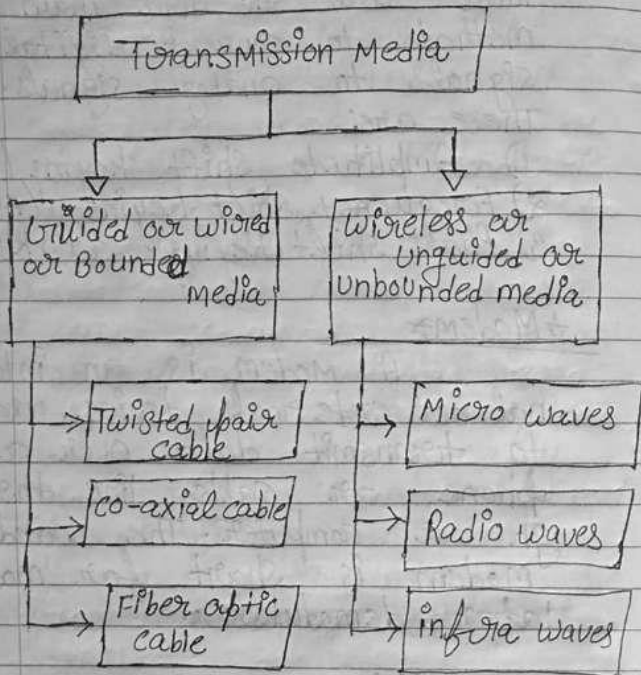 Transmission Media
Guided or wired
or Bounded
media
wireless or
unguided or
unbounded media
Twisted pair
cable
co-axial cable
Fiber optic
cable
Micro waves
Radio waves
infra waves